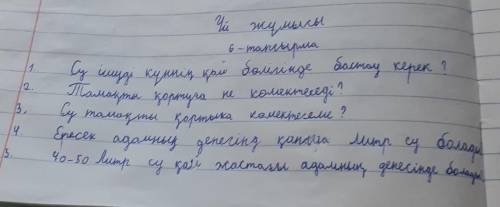 Үй жұмысы
6-тапсырма
1. Су ішуді күннің қай бөлгінде бастау керек?
2. Тамақты қортуға не көмектеседі?
3. Су тамақты қортыка көмектесеме?
4 Ересек адамның денегінд қанша литр су болады
5. 40-50 литр су қай жастағы адамның денесінде болады